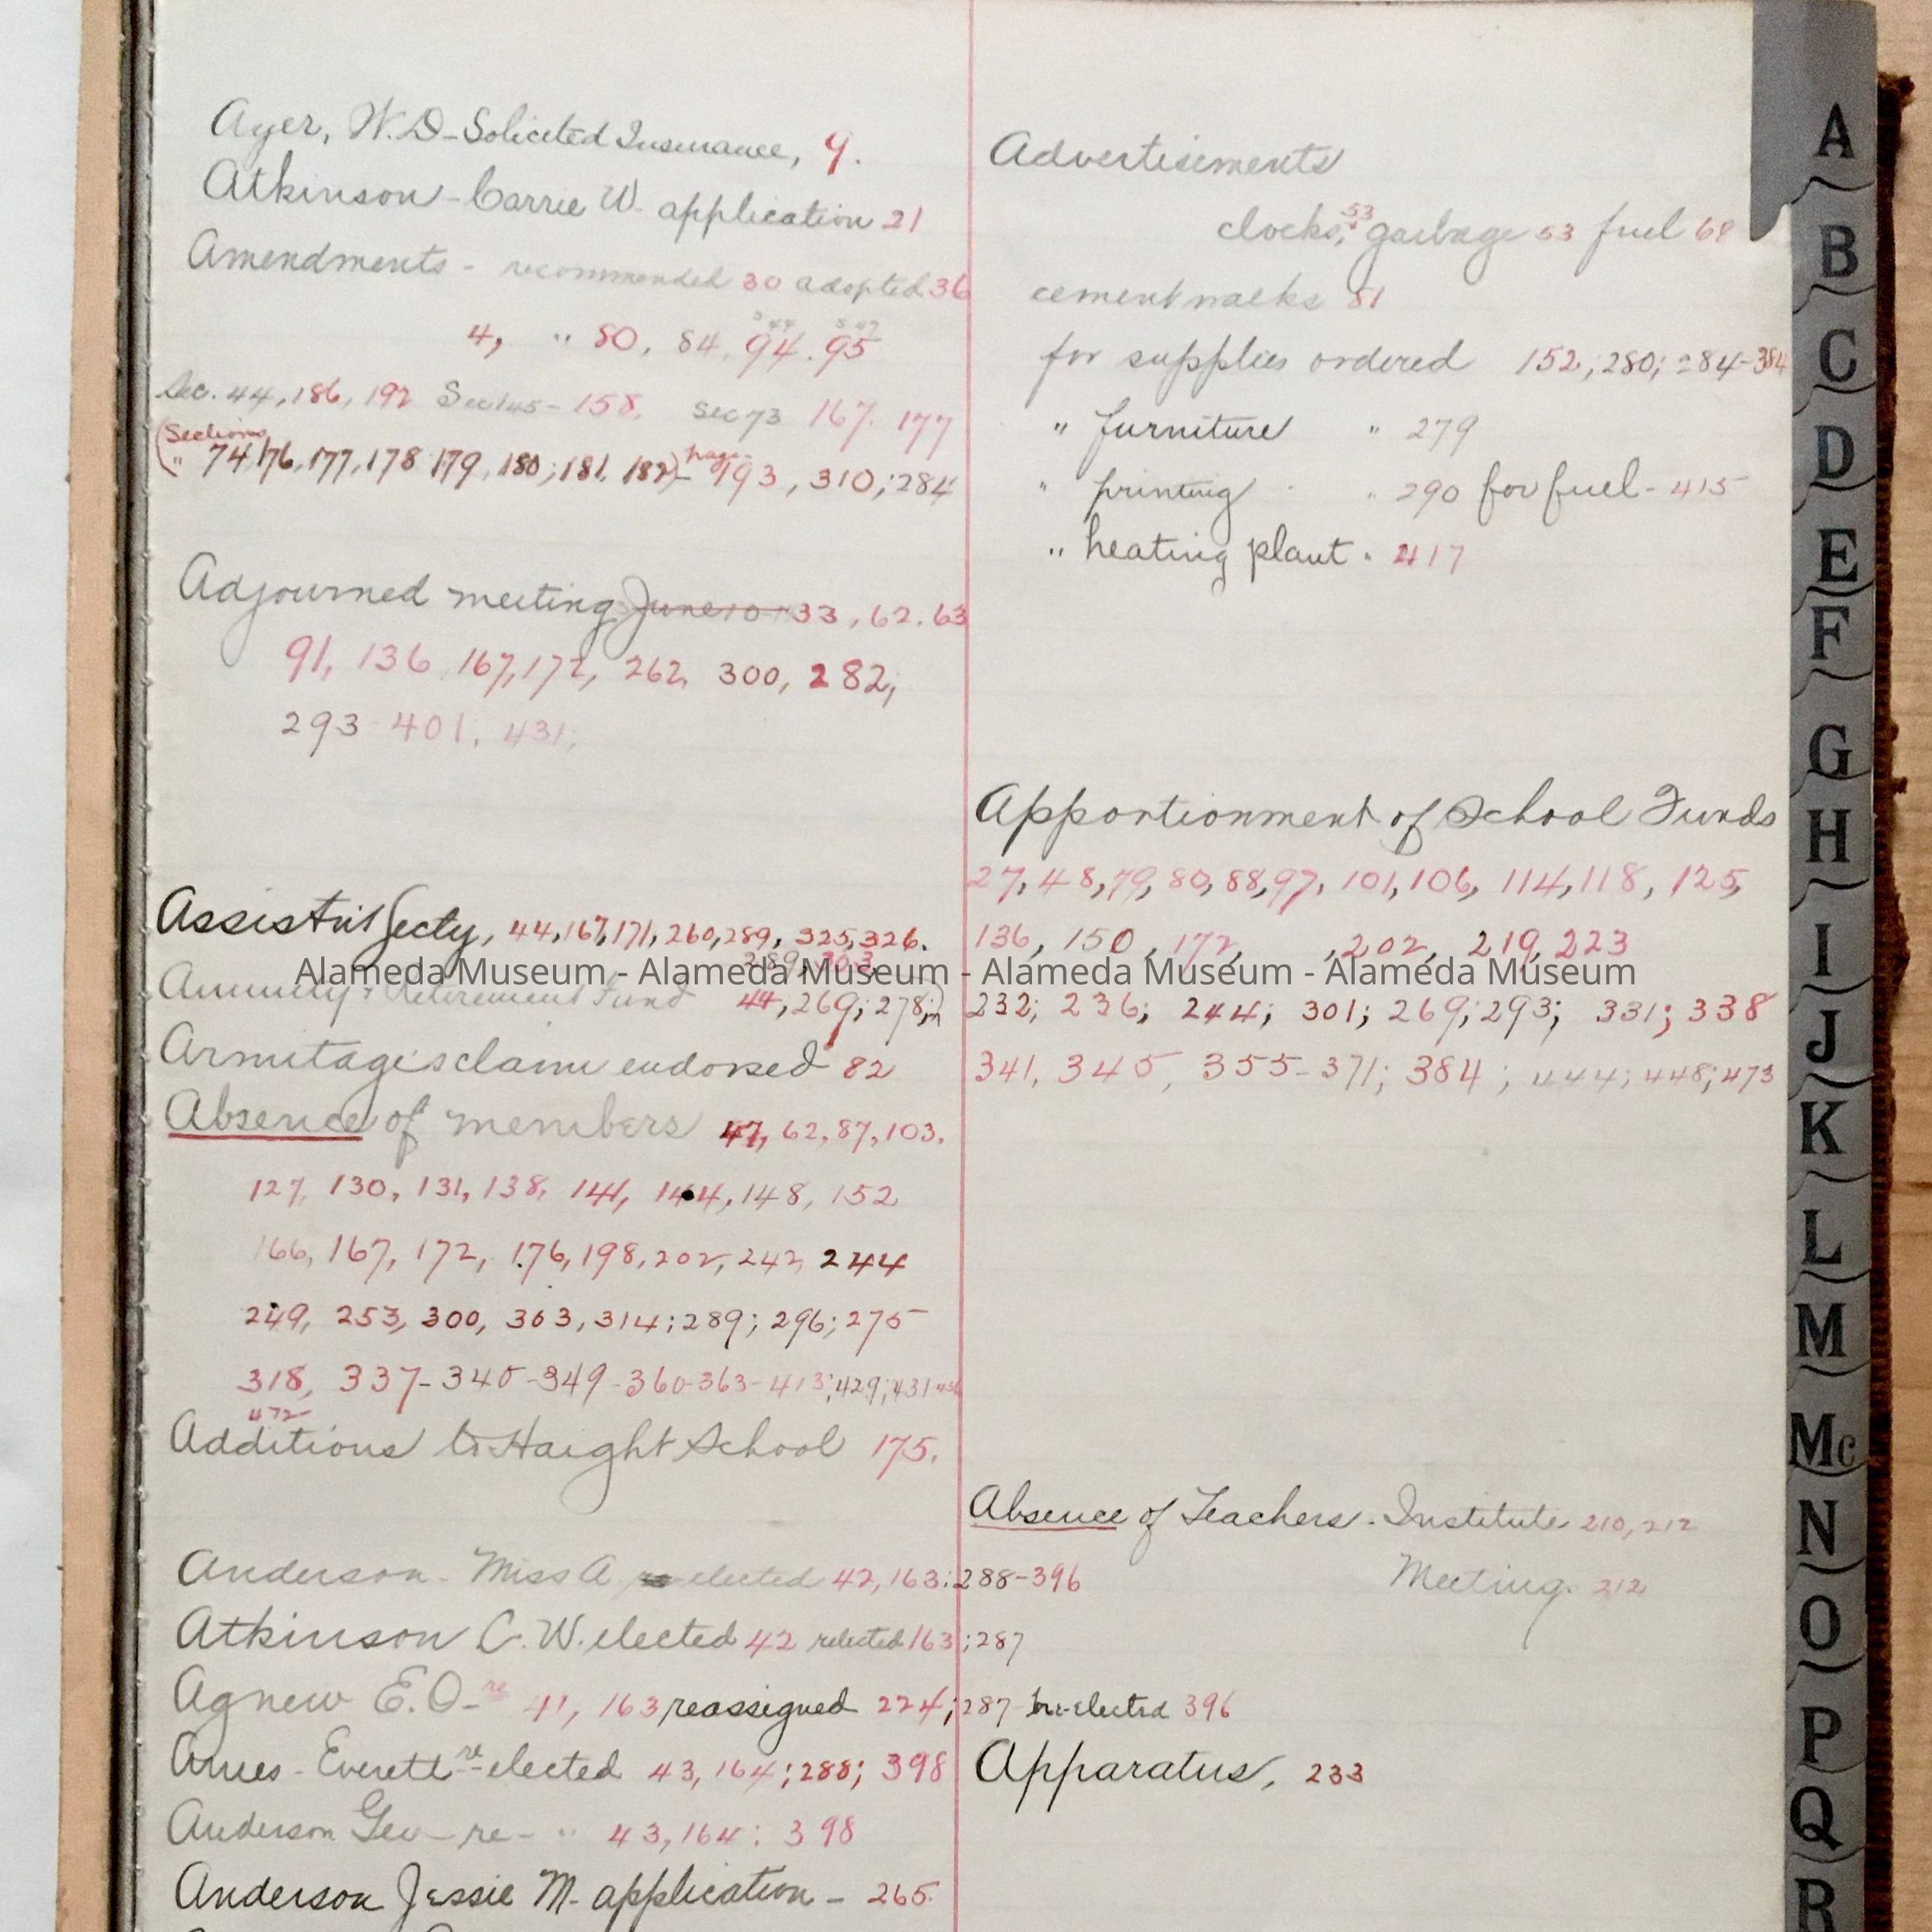 Ayer, W.D-Solicited Insurance, 9.
Atkinson-Carrie W. application 21
Amendments - recommended 30 adopted 36
4, " 80, 84, 94. 95
Sec. 44, 186, 192 Sec 145-158. sec 73 167. 177
(Sections
" 74, 176, 177, 178 179, 180; 181, 182)- page 193, 310; 284
Adjourned meeting June 10 - 33, 62. 63
91, 136, 167, 172, 262, 300, 282;
293-401, 431;
Assist'nt Secty, 44, 167, 171, 260, 289, 325, 326.
289, 303,
Annuity & Retirement Fund 44, 269; 278;
Armitage's claim endorsed 82
Absence of members 47, 62, 87, 103.
127, 130, 131, 138, 141, 144, 148, 152
166, 167, 172, 176, 198, 202, 242, 244
249, 253, 300, 303, 314; 289; 296; 275
318, 337-340-349-360-363-413; 429; 431
472-
Additions to Haight School 175.
Anderson- Miss A. elected 42, 163; 288-396
Atkinson C. W. elected 42 relected 163; 287
Agnew E. O-re 41, 163 reassigned 224; 287 re-elected 396
Ames-Everett re-elected 43, 164; 288; 398
Anderson Geo-re- " 43, 164; 398
Anderson Jessie M- application - 265.
Advertisements
53
clocks, garbage 53 fuel 68
cement walks 81
for supplies ordered 152; 280; 284-384
" furniture " 279
" printing " 290 for fuel-415
" heating plant " 417
Apportionment of School Funds
27, 48, 79, 80, 88, 97, 101, 106, 114, 118, 125,
136, 150, 172, , 202, 219, 223
232; 236; 244; 301; 269; 293; 331; 338
341, 345, 355-371; 384; 444; 448; 473
Absence of Teachers. Institute 210, 212
Meeting. 212
Apparatus, 233
Alameda Museum - Alameda Museum - Alameda Museum - Alameda Museum
A
B
C
D
E
F
G
H
I
J
K
L
M
Mc
N
O
P
Q
R